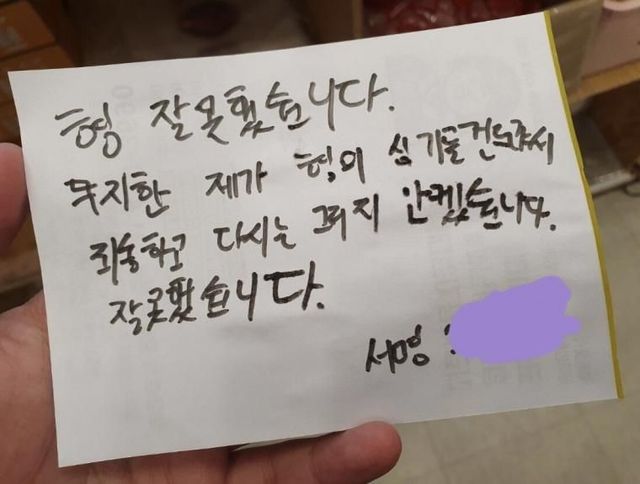 형 잘못했습니다.
무지한 제가 형의 심기를 건드려서
죄송하고 다시는 그러지 안켔습니다.
잘못했습니다.
서명